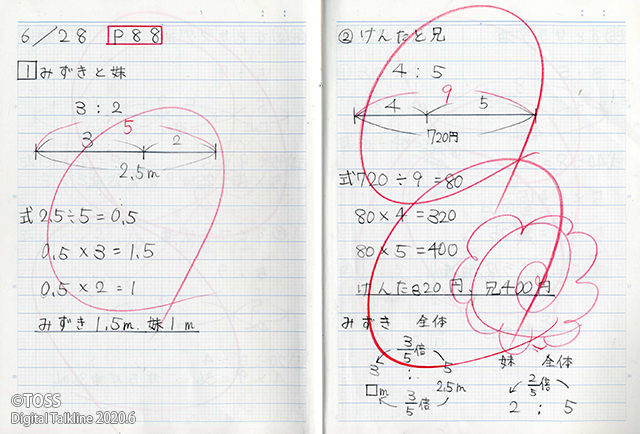 6/28 P88
1 みずきと妹
3 : 2
5
3 2
2.5m
式 2.5÷5=0.5
0.5×3=1.5
0.5×2=1
みずき1.5m.妹1m
©TOSS
Digital Talkline 2020.6
② けんたと兄
4 : 5
9
4 5
720円
式720÷9=80
80×4=320
80×5=400
けんた320円、兄400円
みずき 全体
3/5倍
3 : 5
□m 2.5m
3/5倍
妹 全体
2/5倍
2 : 5